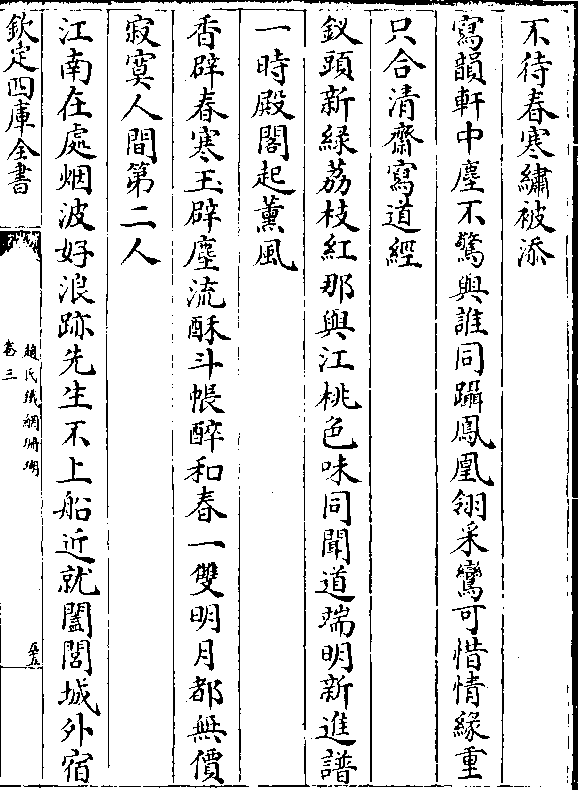 不待春寒繡被添
寫韻軒中塵不驚與誰同躡鳳凰翎采鸞可惜情緣重
只合清齋寫道經
釵頭新緑荔枝紅那與江桃色味同聞道端明新進譜
一時殿閣起薰風
香辟春寒玉辟塵流酥斗帳醉和春一雙明月都無價
寂寞人間第二人
江南在處烟波好浪跡先生不上船近就闔閭城外宿
欽定四庫全書
趙氏鐵網珊瑚
卷三